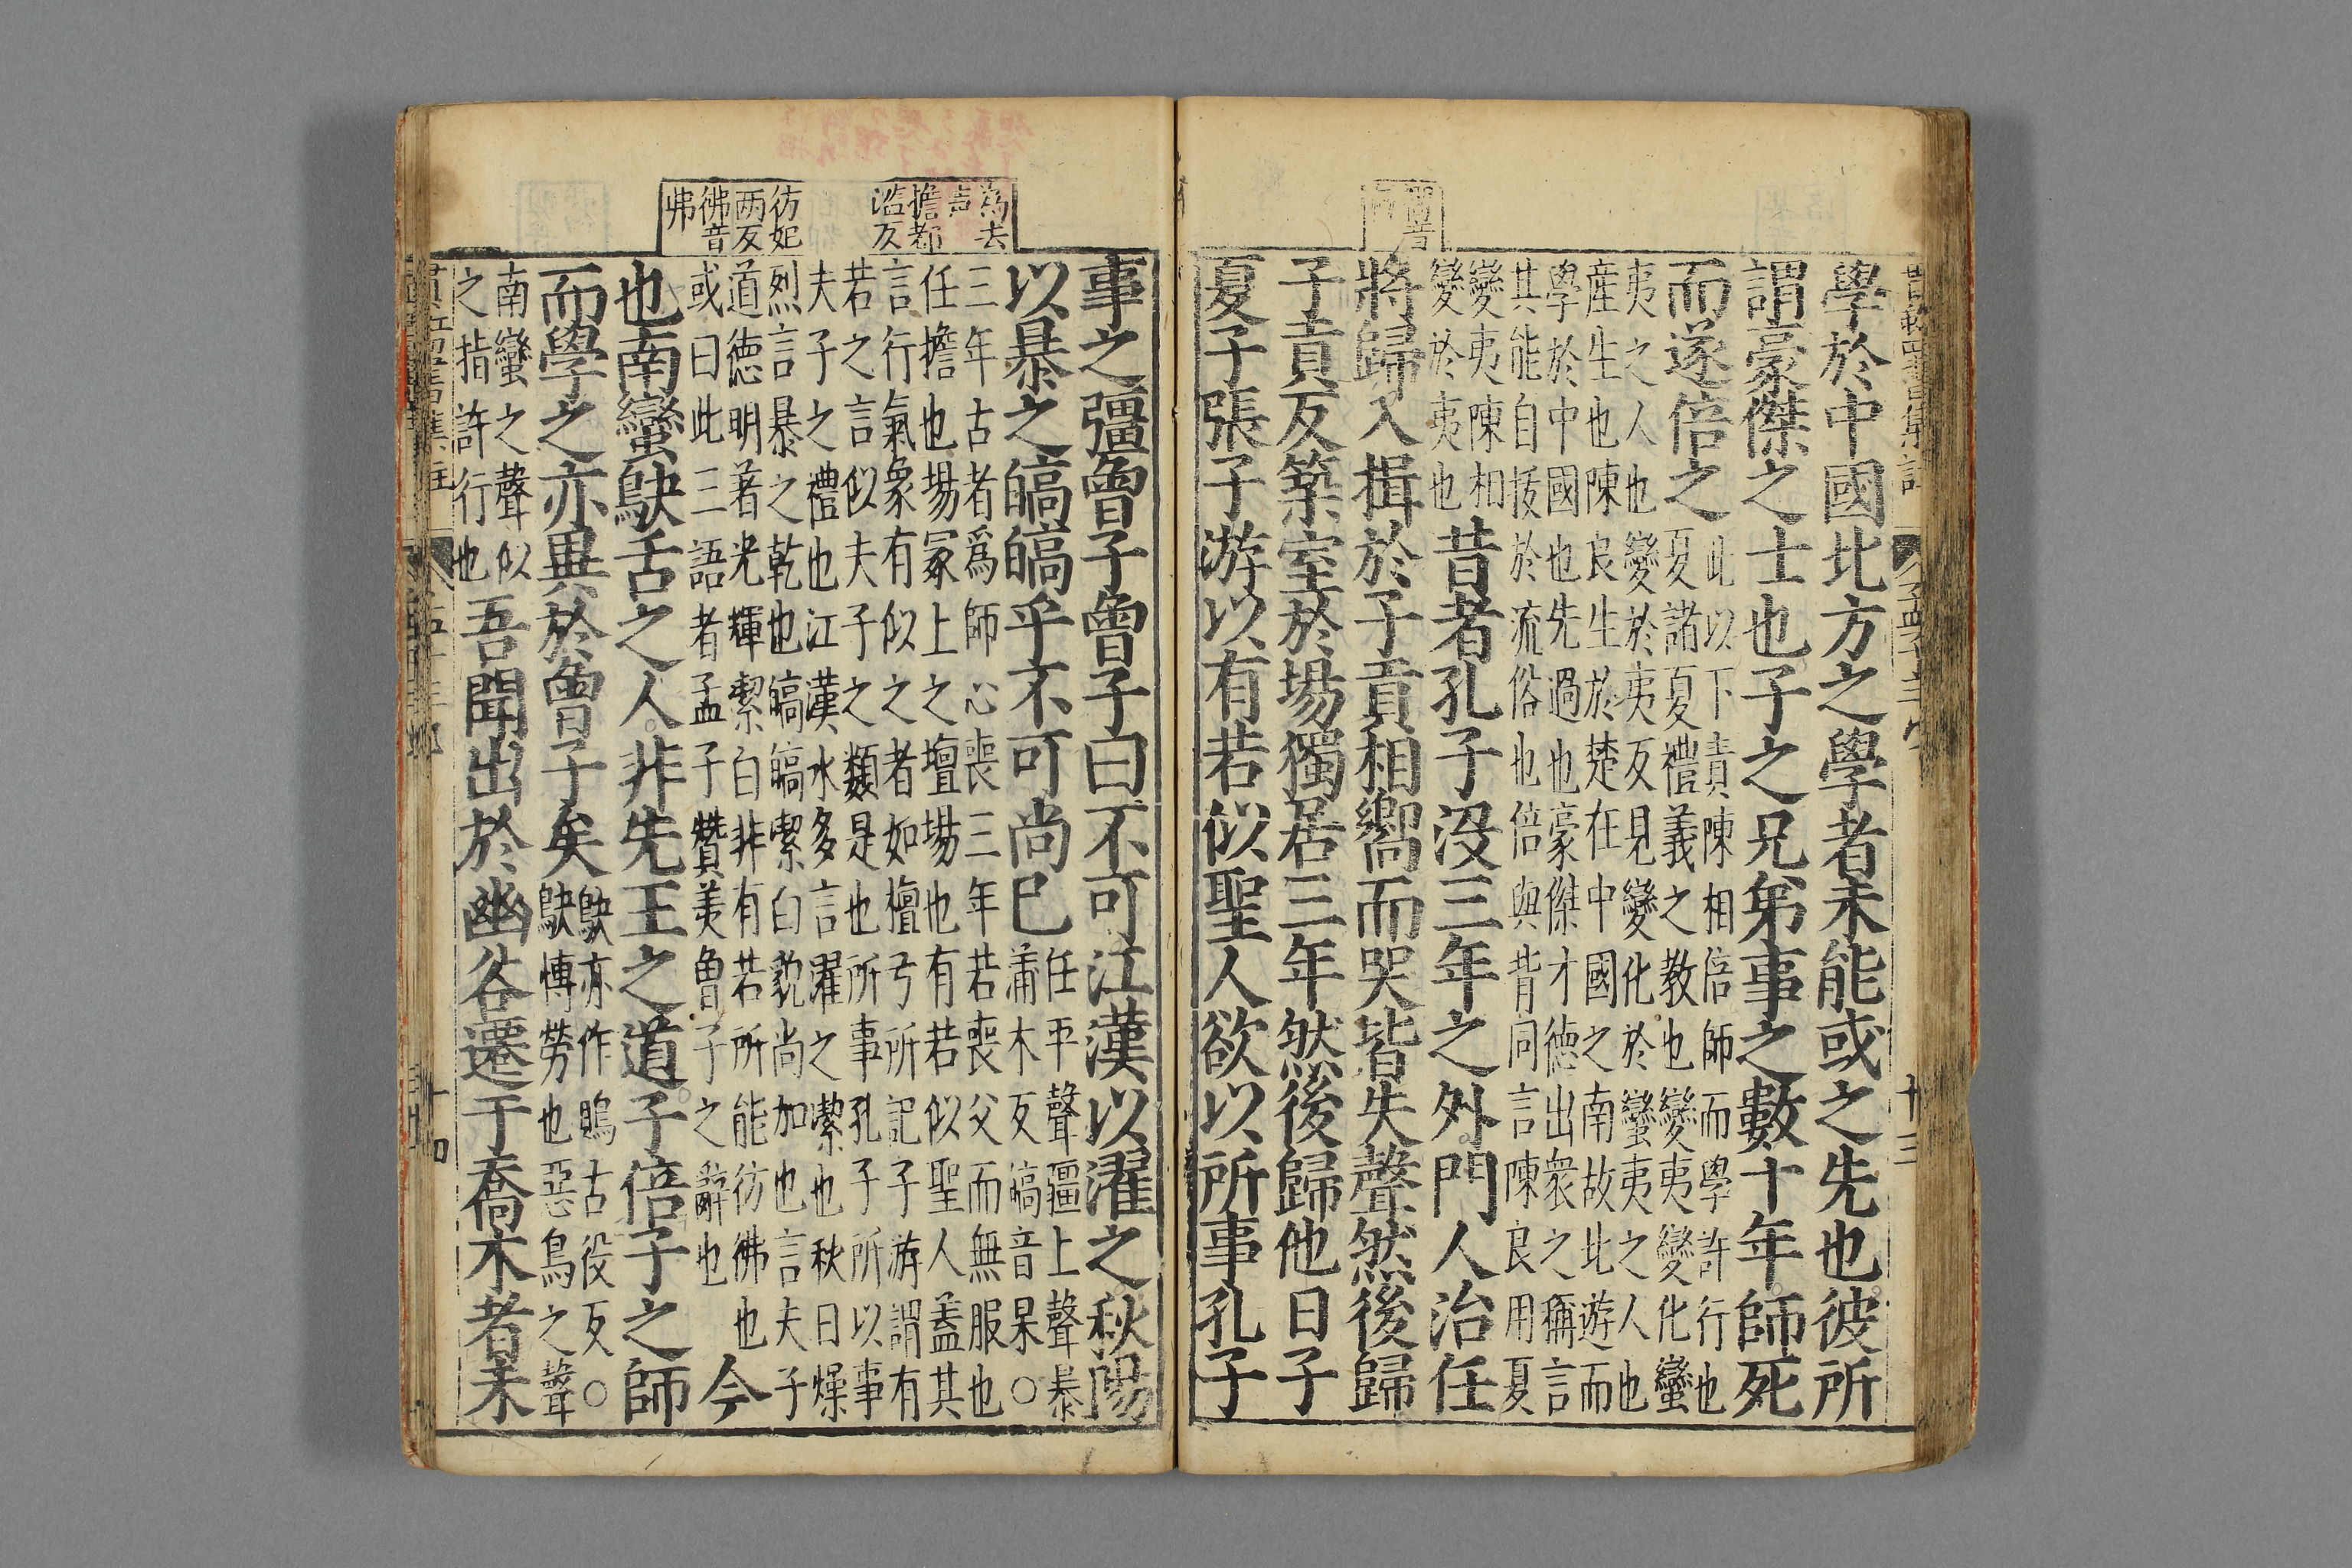 學於中國北方之學者未能或之先也彼所
謂豪傑之士也子之兄弟事之數十年師死
而遂倍之
此以下責陳相倍師而學許行也
夏諸夏禮義之教也變夷變化蠻
夷之人也變於夷反見變化於蠻夷之人也
産生也陳良生於楚在中國之南故北遊而
學於中國也先過也豪傑才德出衆之稱言
其能自拔於流俗也倍與背同言陳良用夏
變夷陳相
變於夷也
昔者孔子没三年之外門人治任
將歸入揖於子貢相嚮而哭皆失聲然後歸
子貢反築室於場獨居三年然後歸他日子
夏子張子游以有若似聖人欲以所事孔子
十三
為去
声
擔都
滥反
彷妃
两反
佛音
弗
事之彊曾子曾子曰不可江漢以濯之秋陽
以暴之皜皜乎不可尚已
任平聲彊上聲暴
蒲木反皜音杲○
三年古者爲師心喪三年若喪父而無服也
任擔也場冢上之壇場也有若似聖人蓋其
言行氣象有似之者如檀弓所記子游謂有
若之言似夫子之類是也所事孔子所以事
夫子之禮也江漢水多言濯之潔也秋日燥
烈言暴之乾也皜皜潔白貌尚加也言夫子
道德明著光輝潔白非有若所能彷彿也
或曰此三語者孟子贊美曾子之辭也
今
也南蠻鴃舌之人非先王之道子倍子之師
而學之亦異於曾子矣
鴃亦作鵙古役反○
鴃博勞也惡鳥之聲
南蠻之聲似
之指許行也
吾聞出於幽谷遷于喬木者未